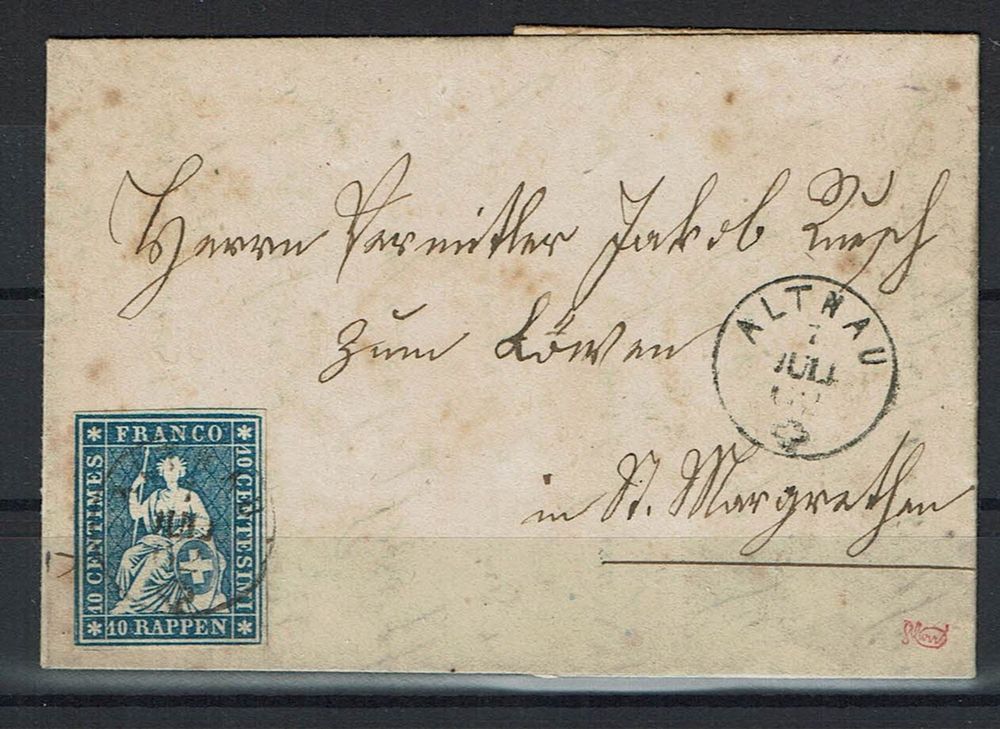 Herrn Vermittler Jakob Ruesch
zum Löwen
in St. Margrethen
ALTNAU
7
JULI
FRANCO
10 CENTIMES
10 CENTESIMI
10 RAPPEN
JULI